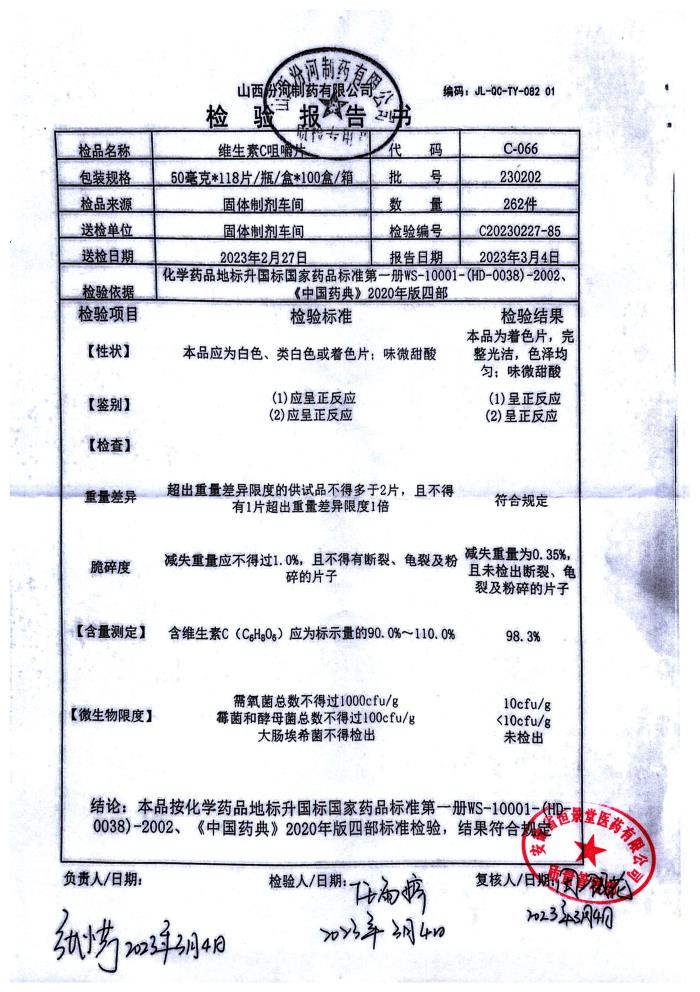 山西汾河制药有限公司
编码：JL-QC-TY-082 01
检 验 报 告 书
山西汾河制药有限公司
检品名称 维生素C咀嚼片 代 码 C-066
包装规格 50毫克*118片/瓶/盒*100盒/箱 批 号 230202
检品来源 固体制剂车间 数 量 262件
送检单位 固体制剂车间 检验编号 C20230227-85
送检日期 2023年2月27日 报告日期 2023年3月4日
检验依据 化学药品地标升国标国家药品标准第一册WS-10001-(HD-0038)-2002、
《中国药典》2020年版四部
检验项目 检验标准 检验结果
【性状】 本品应为白色、类白色或着色片；味微甜酸 本品为着色片，完
整光洁，色泽均
匀；味微甜酸
【鉴别】 (1)应呈正反应 (1)呈正反应
(2)应呈正反应 (2)呈正反应
【检查】
重量差异 超出重量差异限度的供试品不得多于2片，且不得
有1片超出重量差异限度1倍 符合规定
脆碎度 减失重量应不得过1.0%，且不得有断裂、龟裂及粉
碎的片子 减失重量为0.35%，
且未检出断裂、龟
裂及粉碎的片子
【含量测定】 含维生素C（C₆H₈O₆）应为标示量的90.0%～110.0% 98.3%
【微生物限度】 需氧菌总数不得过1000cfu/g 10cfu/g
霉菌和酵母菌总数不得过100cfu/g <10cfu/g
大肠埃希菌不得检出 未检出
结论：本品按化学药品地标升国标国家药品标准第一册WS-10001-(HD-
0038)-2002、《中国药典》2020年版四部标准检验，结果符合规定
安徽省恒景堂医药有限公司
负责人/日期： 检验人/日期： 复核人/日期：
2023年3月4日 2023年3月4日 2023年3月4日